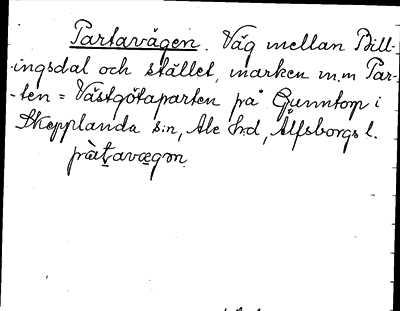 Partavägen. Väg mellan Bill-
ingsdal och stället, marken m.m Par-
ten = Västgötaparten på Gunntorp i
Skepplanda s:n, Ale h:d, Älfsborgs l.